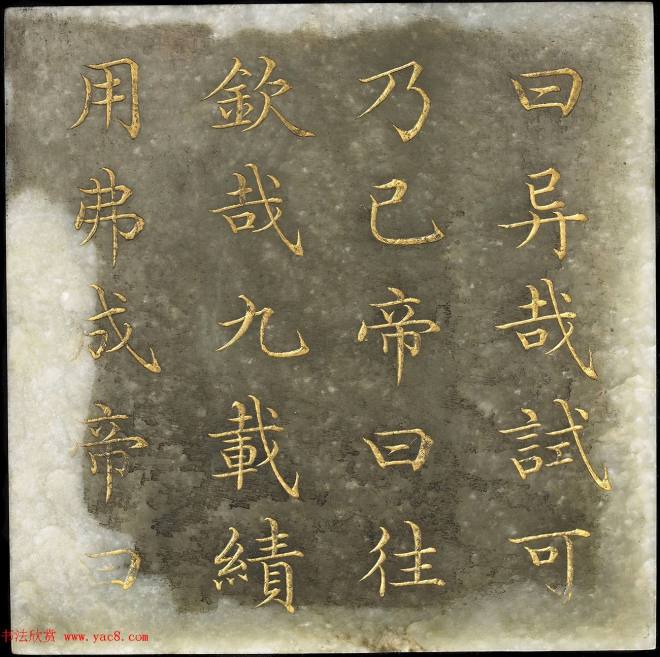 曰异哉試可
乃已帝曰往
欽哉九載績
用弗成帝曰
书法欣赏 www.yac8.com